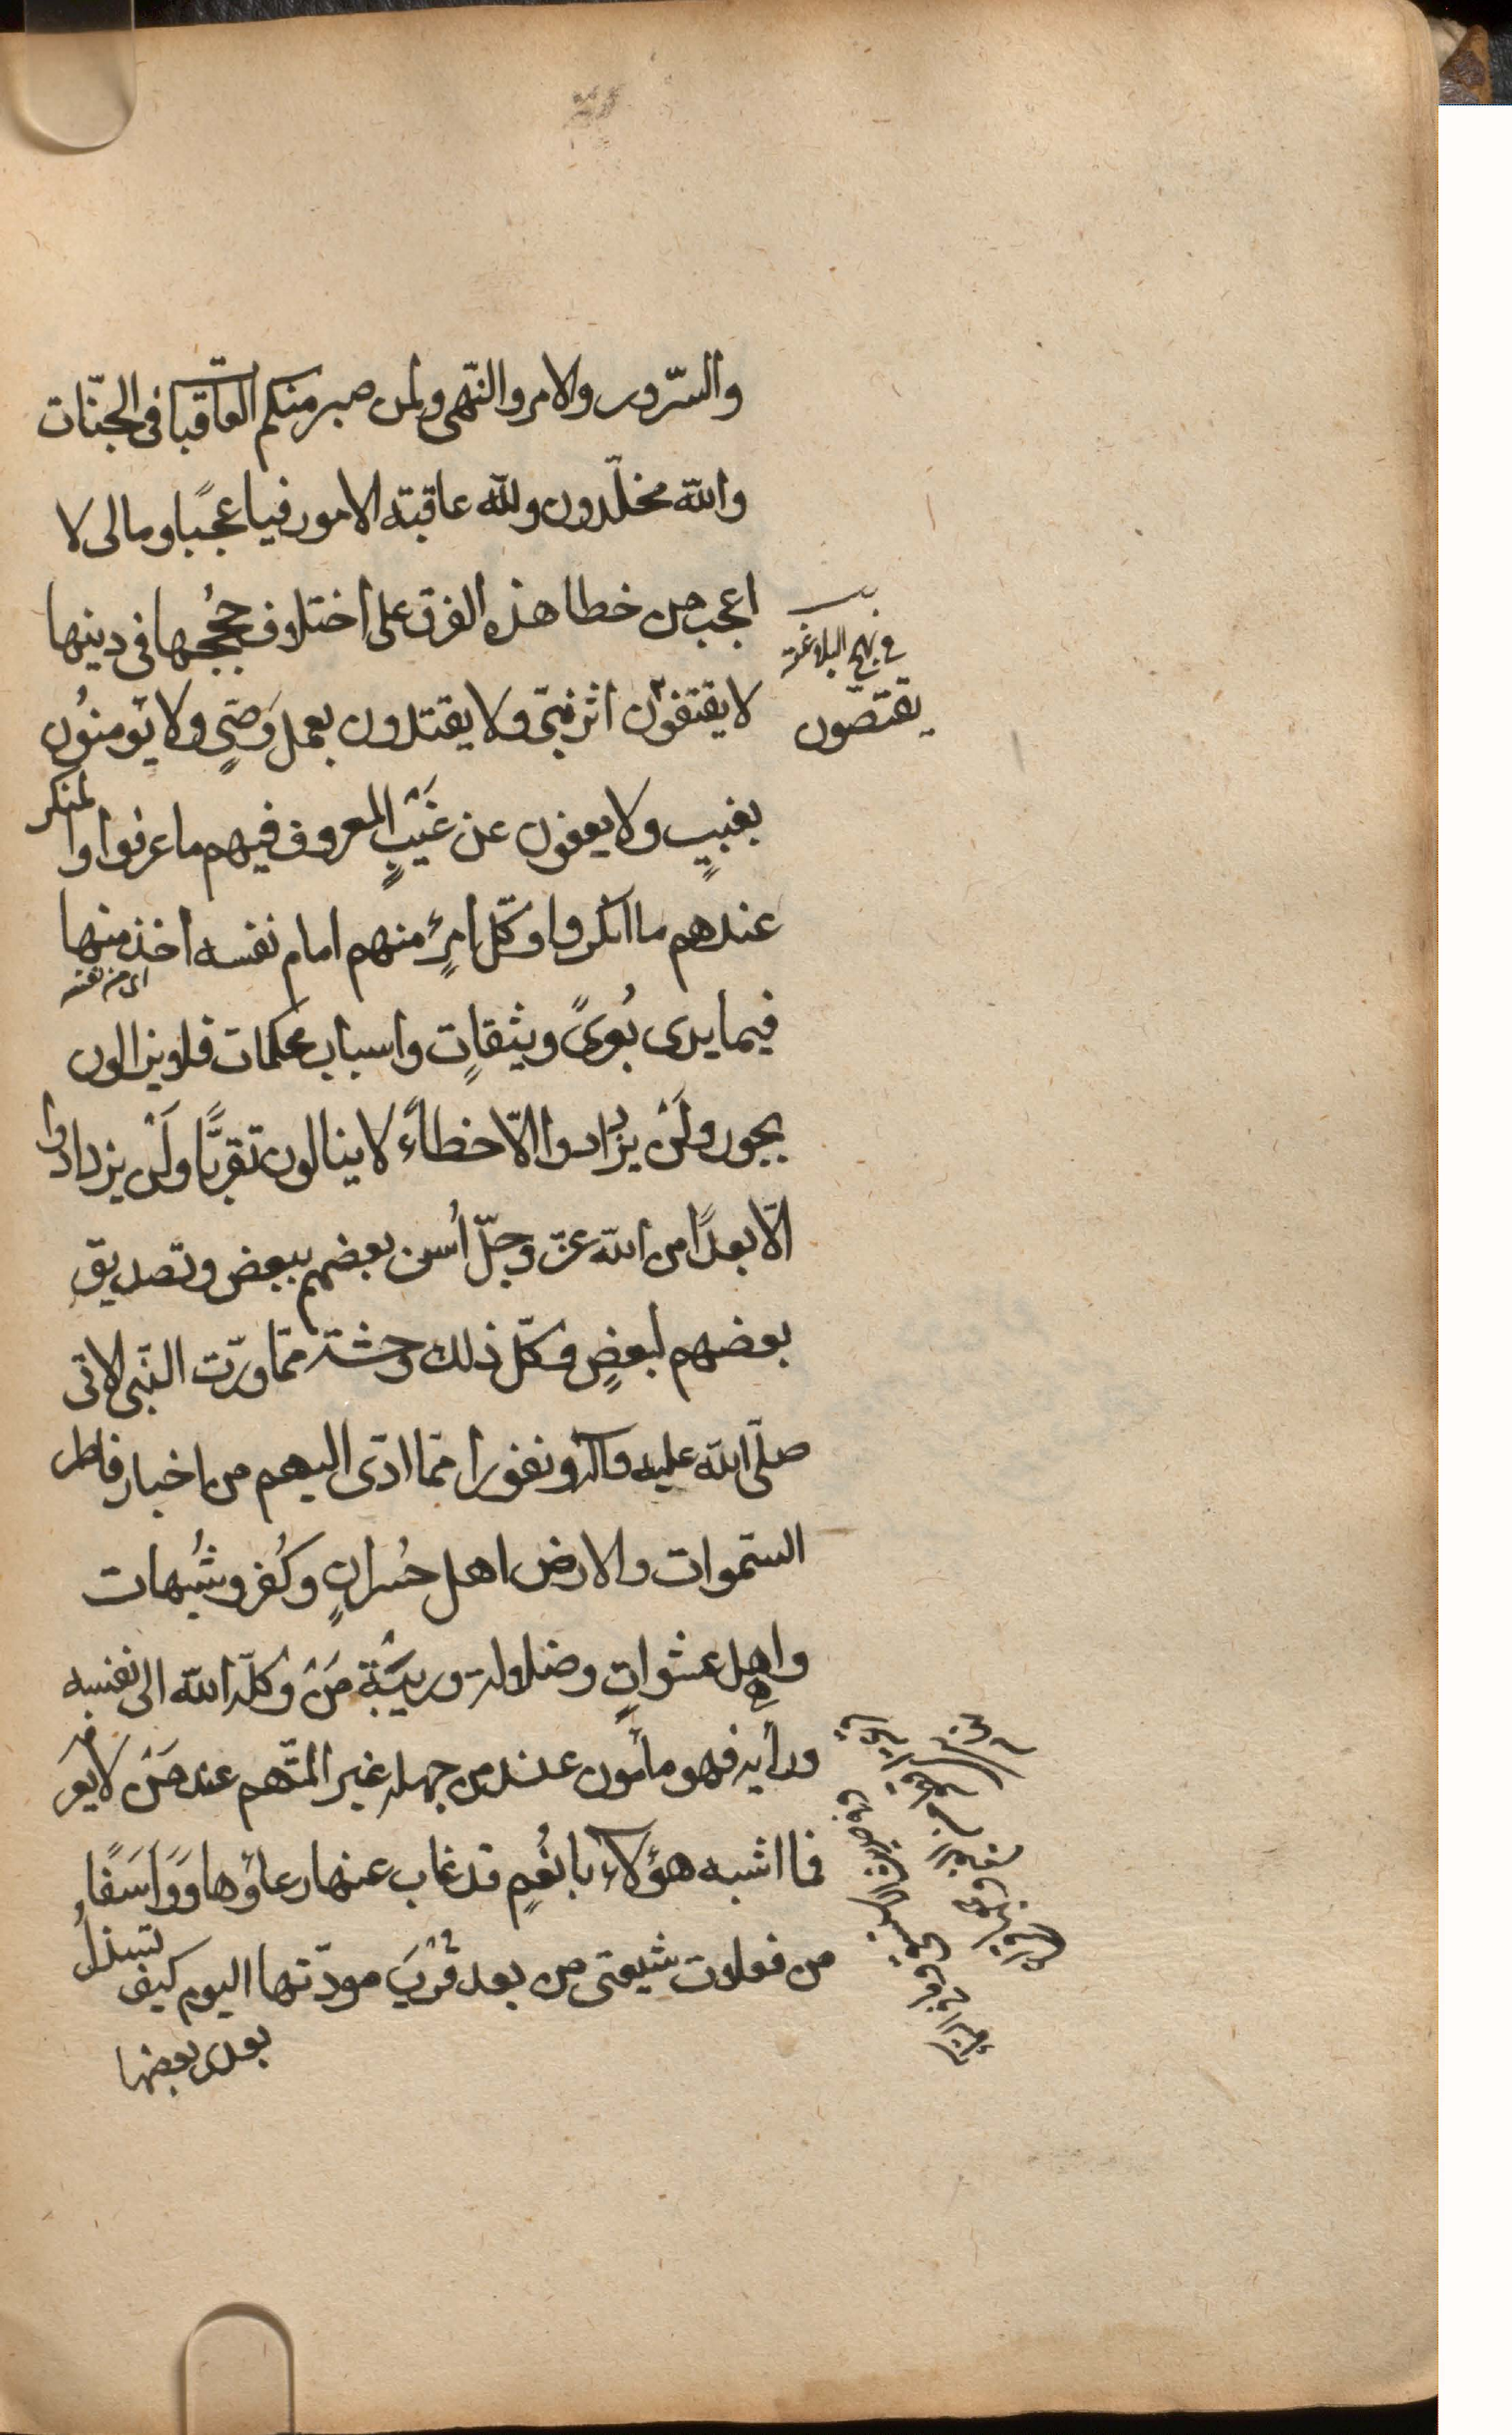 والسّرور والامر والنّهى ولمن صبر منكم العاقبة فى الجنّات
والله مخلّدون ولله عاقبة الامور فيا عجبًا وما لى لا
اعجب من خطا هذه الفرق على اختلاف حُججها فى دينها
فى نهج البلاغة
يقتصّون
لا يقتفون اثر نبىّ ولا يقتدون بعمل وَصىٍ ولا يؤمنُون
بغيبٍ ولا يعفون عن عَيْبٍ المعروف فيهم ما عرفوا والمنكر
عندهم ما انكروا وكلّ امرئٍ منهم امام نفسه اخذ منها
اى من نفسه
فيما يرى بُعرىً وثيقاتٍ واسباب محكمات فلا يزالون
بجور ولَنْ يزدادوا الّا خطاءً لا ينالون تقربًّا ولَنْ يزدادوا
الّا بعدًا من الله عزّ وجلّ اُنس بعضهم ببعض وتصديق
بعضهم لبعضٍ وكلّ ذلك وحشة ممّا ورّث النّبى الامّى
صلّى الله عليه واله ونفورا ممّا ادّى اليهم من اخبار فاطر
السّموات والارض اهل حسَراتٍ وكُفر وشُبهات
واهل عشواتٍ وضلالة وريبَةٍ مَنْ وكلّه الله الى نفسه
ورأيه فهو مأمون عند من جهله غير المتّهم عند مَنْ لا يعرفه
فما اشبه هؤلاء بانعُمٍ قد غاب عنها رعاؤها وَوَاسَفًا
من فعلات شيعتى من بعد قُرْبِ مودّتها اليوم كيف يستذلُّ
بعدى بعضها